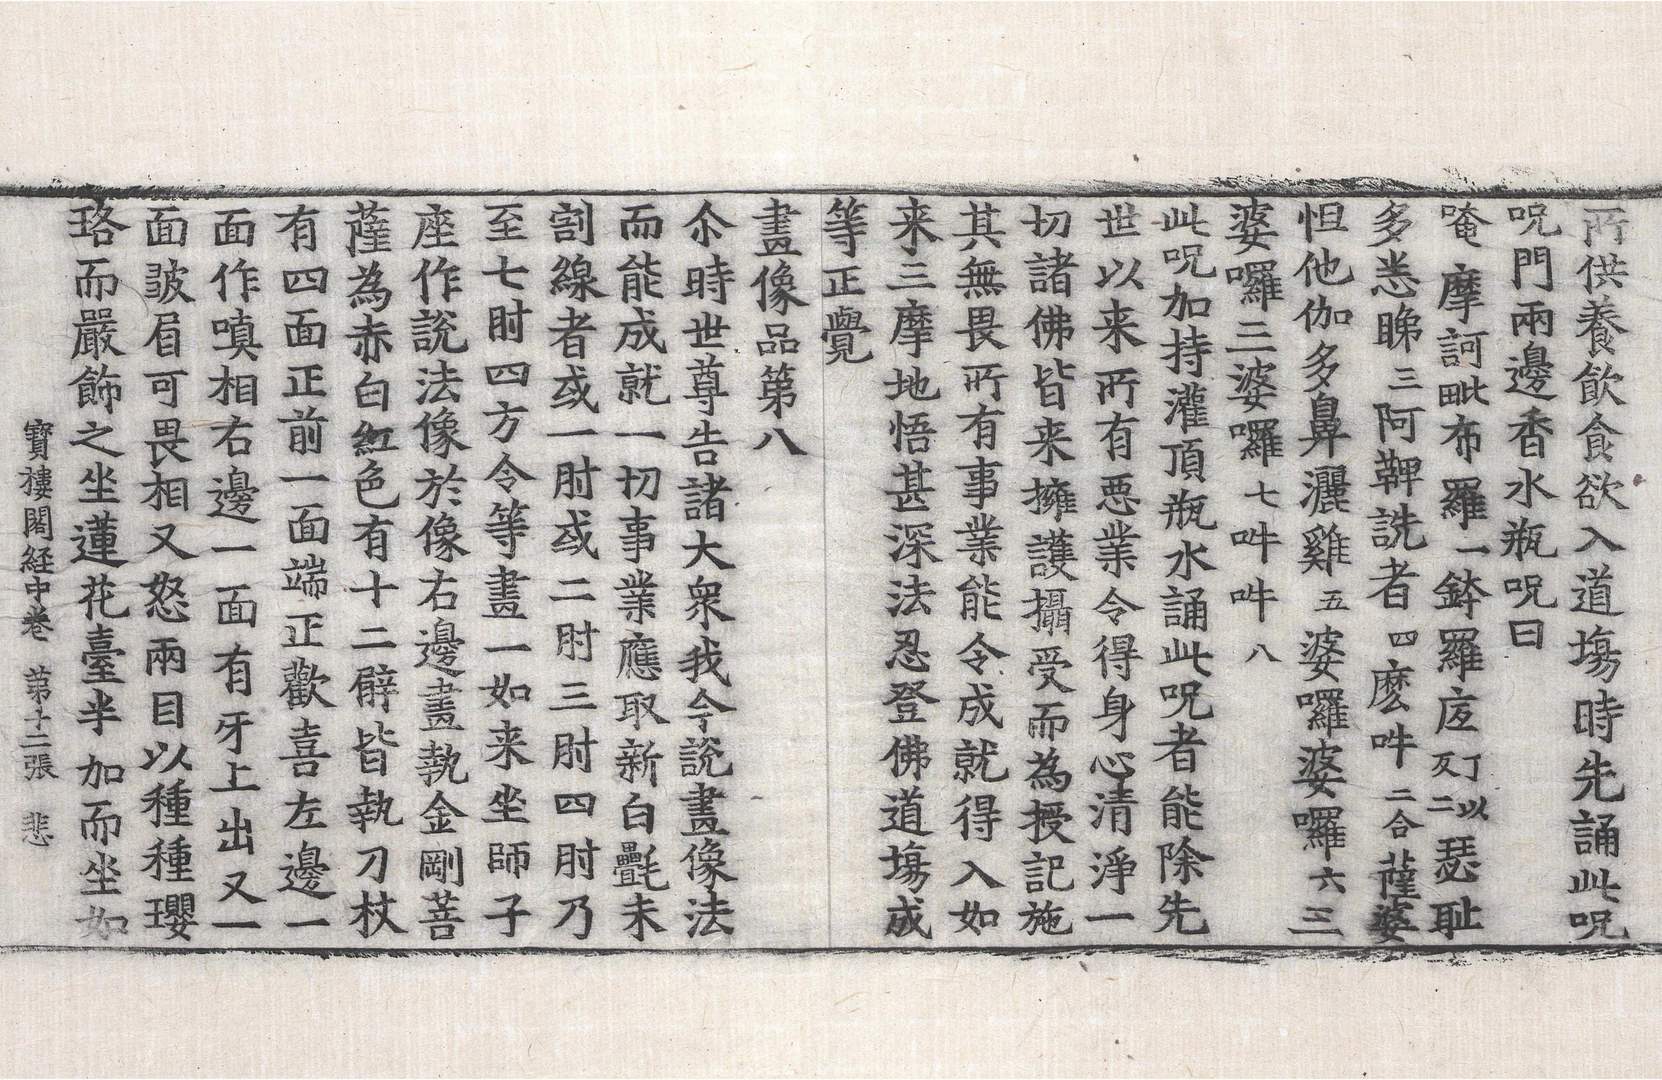 所供養飲食欲入道塲時先誦此呪
呪門兩邊香水瓶呪曰
唵摩訶毗布羅一鉢羅底丁以反二瑟耻
多悉睇三阿鞞詵者四麽吽二合薩婆
怛他伽多鼻灑雞五婆囉婆囉六三
婆囉三婆囉七吽吽八
此呪加持灌頂瓶水誦此呪者能除先
世以来所有惡業令得身心清淨一
切諸佛皆来擁護攝受而為授記施
其無畏所有事業能令成就得入如
来三摩地悟甚深法忍登佛道塲成
等正覺
畫像品第八
尒時世尊告諸大衆我今說畫像法
而能成就一切事業應取新白㲲未
割線者或一肘或二肘三肘四肘乃
至七肘四方令等畫一如来坐師子
座作說法像於像右邊畫執金剛菩
薩為赤白紅色有十二臂皆執刀杖
有四面正前一面端正歡喜左邊一
面作嗔相右邊一面有牙上出又一
面皺眉可畏相又怒兩目以種種瓔
珞而嚴飾之坐蓮花臺半加而坐如
寶樓閣経中卷 第十二張 悲